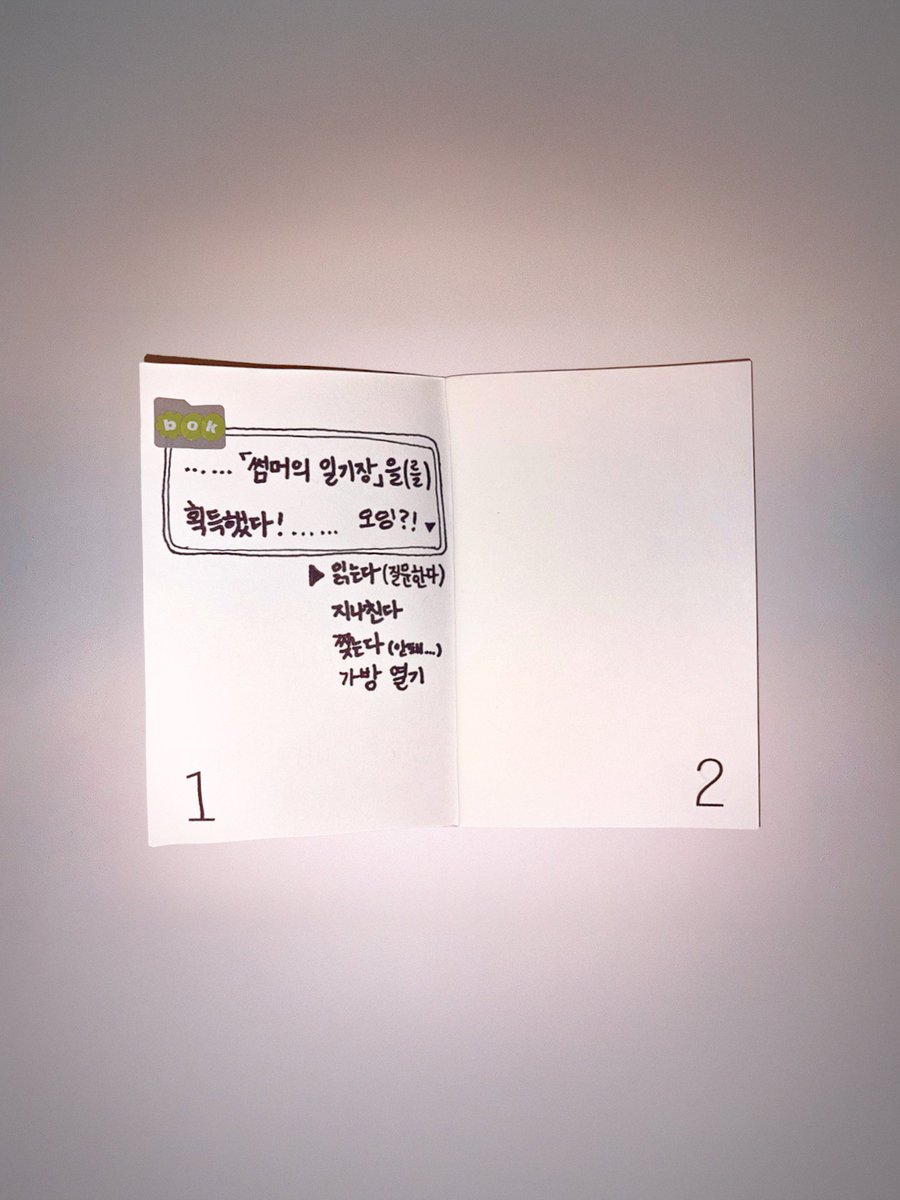 bok
...... 「썸머의 일기장」을(를)
획득했다!...... 오잉?! ▼
▶ 읽는다 (질문한다)
지나친다
찢는다 (안돼...)
가방 열기
1
2